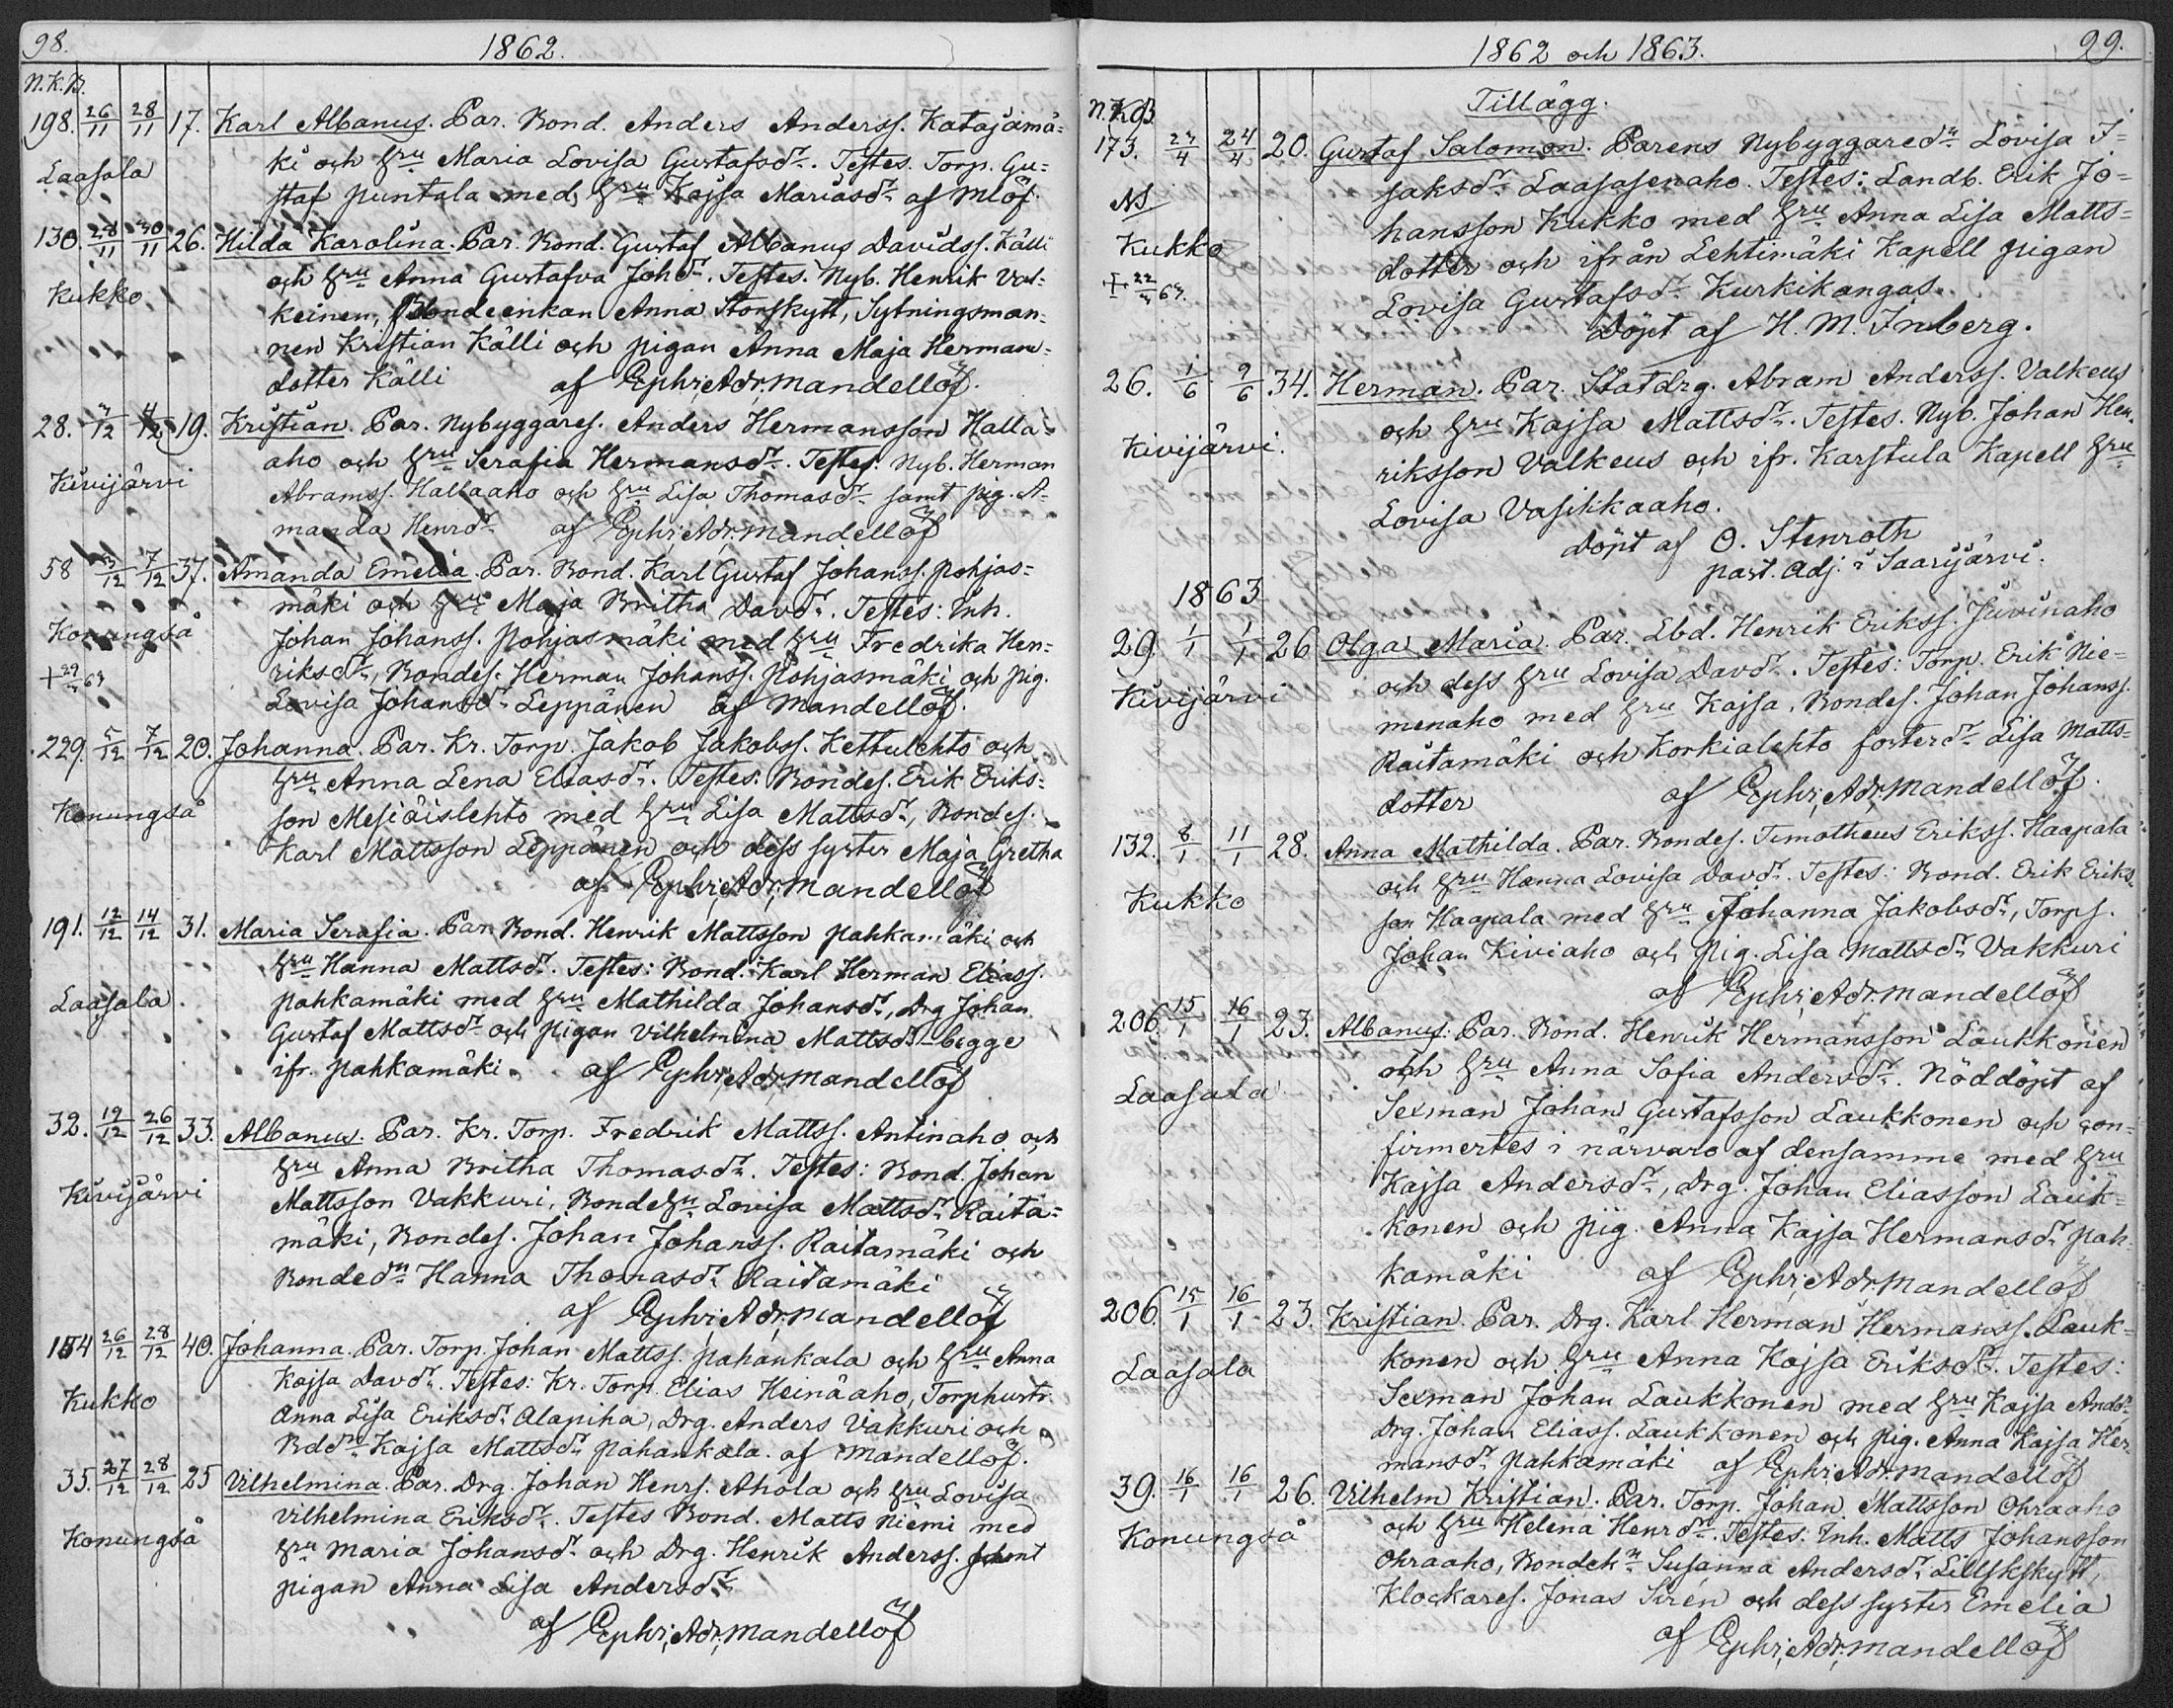 98.
1862.
N.K.B.
198. 26/11 28/11 17. Karl Albanus. Par. Bond. Anders Anderss. Katajamä-
Laasala
ki och hru Maria Lovisa Gustafsdr. Testes. Torp. Gu-
staf Puntala med hru Kajsa Mariasdr af Mlöf.
130. 28/11 30/11 26. Hilda Karolina. Par. Bond. Gustaf Albanus Davidss. Källi
och hru Anna Gustafva Johdr. Testes. Nyb. Henrik Val-
Kukko
keinen, Bondeenkan Anna Storskytt, Sytningsman-
nen Kristian Källi och pigan Anna Maja Herman-
dotter Källi af Ephr. Adr. Mandellöf.
28. 3/12 4/12 19. Kristian. Par. Nybyggares. Anders Hermansson Halla-
aho och hru Serafia Hermansdr. Testes. Nyb. Herman
Kivijärvi
Abramss. Hallaaho och hru Lisa Thomasdr samt pig. A-
manda Henrdr af Ephr. Adr. Mandellöf
58 3/12 7/12 37. Amanda Emelia. Par. Bond. Karl Gustaf Johanss. Pohjas-
mäki och hru Maja Britha Davdr. Testes: Inh.
Konungså
Johan Johanss. Pohjasmäki med hru Fredrika Hen-
riksdr, Bondes. Herman Johanss. Pohjasmäki och pig.
Lovisa Johansdr Leppänen af Mandellöf.
229. 5/12 7/12 20. Johanna. Par. Kr. Torp. Jakob Jakobss. Kettulehto och
hru Anna Lena Eliasdr. Testes: Bondes. Erik Eriks-
Konungså
son Mesiäislehto med hru Lisa Mattsdr, Bondes.
Karl Mattsson Leppänen och dess syster Maja Gretha
af Ephr. Adr. Mandellöf
191. 12/12 14/12 31. Maria Serafia. Par. Bond. Henrik Mattsson Pahkamäki och
hru Hanna Mattsdr. Testes: Bond. Karl Herman Eliass.
Laasala.
Pahkamäki med hru Mathilda Johansdr, Drg Johan
Gustaf Mattsdr och pigan Vilhelmina Mattsdr begge
ifr. Pahkamäki. af Ephr. Adr. Mandellöf
32. 19/12 26/12 33. Albanus. Par. Kr. Torp. Fredrik Mattss. Antinaho och
hru Anna Britha Thomasdr. Testes: Bond. Johan
Kivijärvi
Mattsson Vakkuri, Bondehu Lovisa Mattsdr Raita-
mäki, Bondes. Johan Johanss. Raitamäki och
Bondedn Hanna Thomasdr Raitamäki
af Ephr. Adr. Mandellöf
154 26/12 28/12 40. Johanna. Par. Torp. Johan Mattss. Pahankala och hru Anna
Kajsa Davdr. Testes: Kr. Torp. Elias Heinäaho, Torphustr.
Kukko
Anna Lisa Eriksdr Alapiha, Drg. Anders Vakkuri och
Bddr Kajsa Mattsdr Pahankala. af Mandellöf.
35. 27/12 28/12 25 Vilhelmina. Par. Drg. Johan Henrs. Ahola och hru Lovisa
Vilhelmina Eriksdr. Testes Bond. Matts Niemi med
Konungså
hru Maria Johansdr och Drg. Henrik Anderss. samt
pigan Anna Lisa Andersdr
af Ephr. Adr. Mandellöf
1862 och 1863.
99.
Tillägg.
N.K.B.
173. 23/4 24/4 20. Gustaf Salomon. Parens Nybyggaredn Lovisa I-
saksdr Laasasenaho. Testes: Landb. Erik Jo-
NS
hansson Kukko med hru Anna Lisa Matts-
Kukko
dotter och ifrån Lehtimäki Kapell pigan
Lovisa Gustafsdr Kurkikangas.
Döpt af H. M. Inberg.
26. 1/6 9/6 34. Herman. Par. Statdrg. Abram Anderss. Valkeus
och hru Kajsa Mattsdr. Testes. Nyb. Johan Hen-
Kivijärvi.
riksson Valkeus och ifr. Karstula Kapell hru
Lovisa Vasikkaaho.
Döpt af O. Stenroth
past. adj. i Saarijärvi.
1863
29. 1/1 1/1 26 Olga Maria. Par. Lbd. Henrik Erikss. Juvinaho
och dess hru Lovisa Davdr. Testes: Torp. Erik Nie-
Kivijärvi
menaho med hru Kajsa, Bondes. Johan Johanss.
Raitamäki och Korkialehto fosterdr Lisa Matts-
dotter af Ephr. Adr. Mandellöf.
132. 8/1 11/1 28. Anna Mathilda. Par. Bondes. Timotheus Erikss. Haapala
och hru Hanna Lovisa Davdr. Testes: Bond. Erik Eriks-
Kukko
son Haapala med hru Johanna Jakobsdr, Torps.
Johan Kiviaho och pig. Lisa Mattsdr Vakkuri
af Ephr. Adr. Mandellöf
206. 15/1 16/1 23. Albanus. Par. Bond. Henrik Hermansson Laukkonen
och hru Anna Sofia Andersdr. Nöddöpt af
Laasala
Sexman Johan Gustafsson Laukkonen och con-
firmertes i närvaro af densamme med hru
Kajsa Andersdr, Drg. Johan Eliasson Lauk-
konen och pig. Anna Kajsa Hermansdr Pah-
kamäki af Ephr. Adr. Mandellöf
206. 15/1 16/1 23. Kristian. Par. Drg. Karl Herman Hermanss. Lauk-
konen och hru Anna Kajsa Eriksdr. Testes:
Laasala
Sexman Johan Laukkonen med hru Kajsa Anddr
Drg. Johan Eliass. Laukkonen och pig. Anna Kajsa Her-
mansdr Pahkamäki af Ephr. Adr. Mandellöf
39. 16/1 16/1 26. Vilhelm Kristian. Par. Torp. Johan Mattsson Ohraaho
och hru Helena Henrdr. Testes. Inh. Matts Johansson
Konungså
Ohraaho, Bondehu Susanna Andersdr Lillskskytt,
Klockares. Jonas Sirén och dess syster Emelia
af Ephr. Adr. Mandellöf